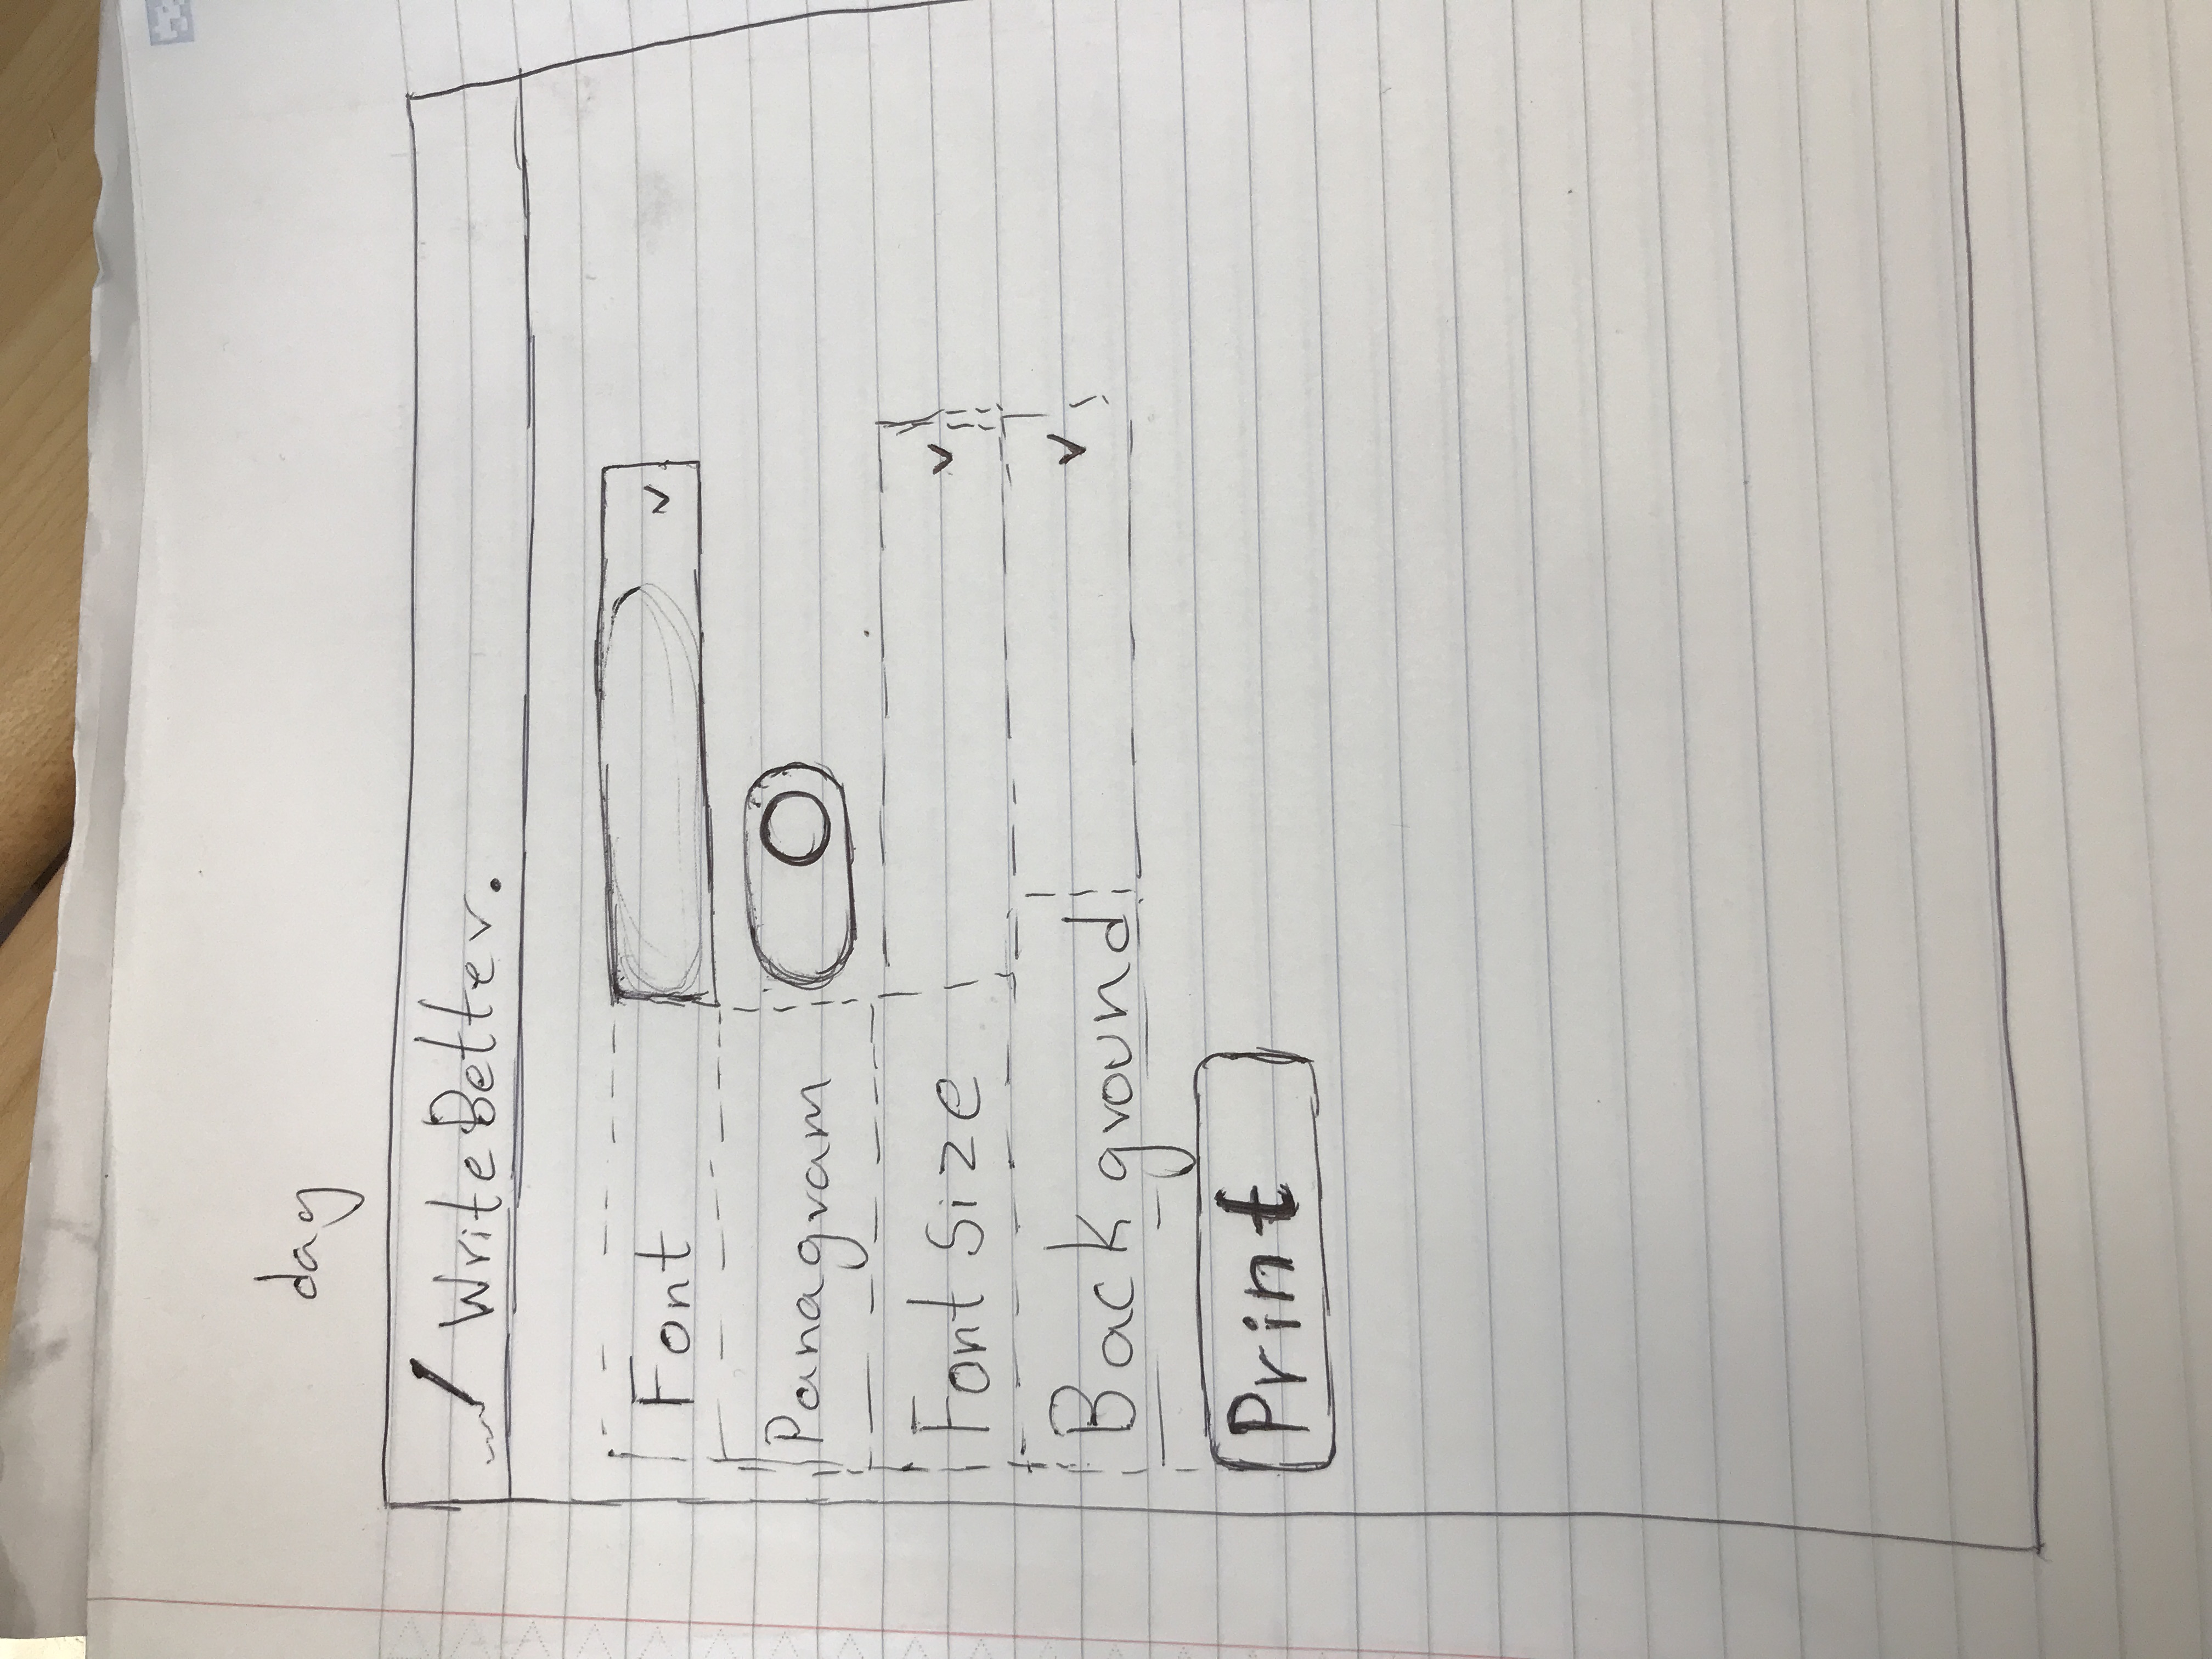 day
WriteBetter.
Font
Panagram
Font Size
Background
Print